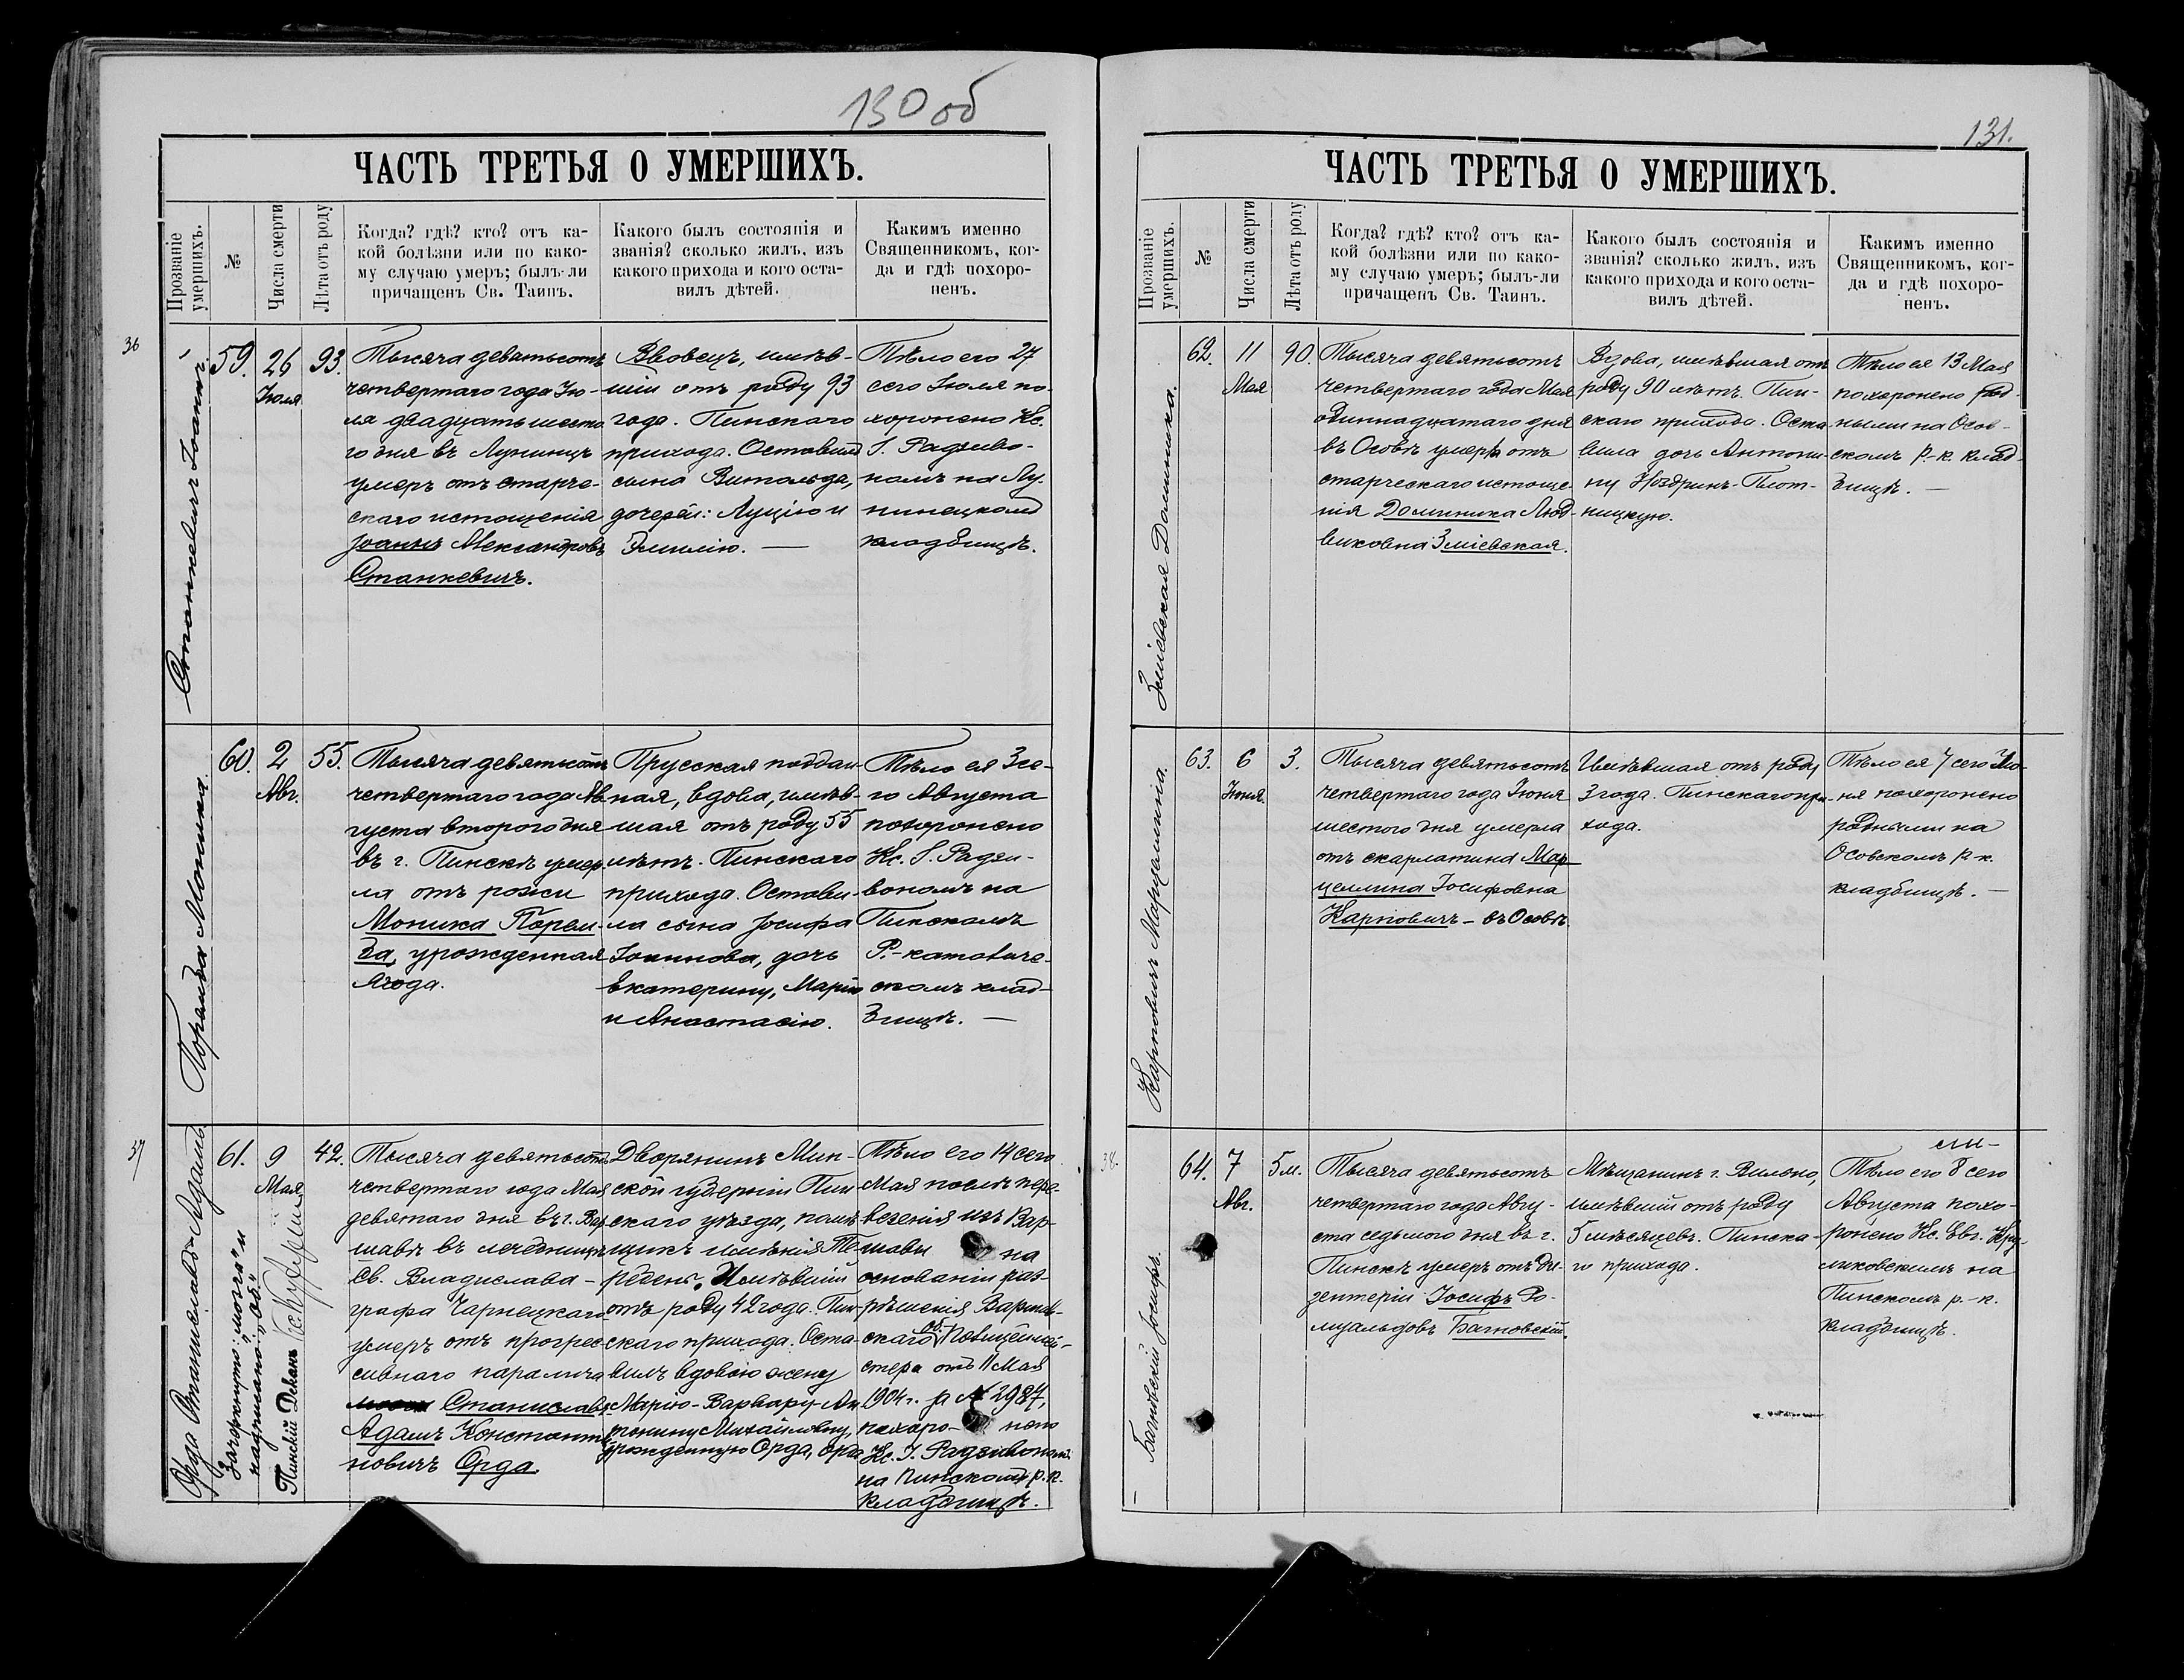 130 об
ЧАСТЬ ТРЕТЬЯ О УМЕРШИХЪ.
Прозваніе умершихъ.
№
Числа смерти
Лѣта отъ роду
Когда? гдѣ? кто? отъ ка-
кой болѣзни или по како-
му случаю умеръ; былъ-ли
причащенъ Св. Таинъ.
Какого былъ состоянія и
званія? сколько жилъ, изъ
какого прихода и кого оста-
вилъ дѣтей.
Какимъ именно
Священникомъ, ког-
да и гдѣ похоро-
ненъ.
36
Станкевичъ Іоаннъ.
59.
26
Іюля
93.
Тысяча девятьсотъ
четвертаго года Ію-
ля двадцать шесто
го дня въ Лунинцѣ
умеръ отъ старче-
скаго истощенія
Іоаннъ Александровъ
Станкевичъ.
Вдовецъ, имѣв-
шій отъ роду 93
года. Пинскаго
прихода. Оставилъ
сына Витольда,
дочерей: Луцію и
Эмилію. —
Тѣло его 27
сего Іюля по-
хоронено Кс.
І. Радзиво-
номъ на Лу-
нинецкомъ
кладбищѣ.
Поранда Моника.
60.
2
Авг.
55.
Тысяча девятьсотъ
четвертаго года Ав
густа второго дня
въ г. Пинскѣ умер-
ла отъ рожи
Моника Порен-
да, урожденная
Ягода.
Прусская поддан-
ная, вдова, имѣв-
шая отъ роду 55
лѣтъ. Пинскаго
прихода. Остави-
ла сына Іосифа
Іоаннова, дочь
Екатерину, Марію
и Анастасію.
Тѣло ея 3 се-
го Августа
похоронено
Кс. І. Радзи-
вономъ на
Пинскомъ
Р.-католиче-
скомъ клад-
бищѣ. —
37
Орда Станиславъ-Адамъ
Зачеркнуто: „моги" и
надписано: „об."
Пинскій Деканъ
61.
9
Мая
42.
Тысяча девятьсотъ
четвертаго года Мая
девятаго дня въ г. Вар
шавѣ въ лечебницѣ
Св. Владислава —
графа Чарнецкаго
умеръ отъ прогрес
сивнаго паралича
Станиславъ
Адамъ Константи
новичъ Орда.
Дворянинъ Мин-
ской губерніи Пин
скаго уѣзда, помѣ
щикъ имѣнія Те
ребень. Имѣвшій
отъ роду 42 года. Пин
скаго прихода. Оста-
вилъ вдовою жену
Марію-Варвару Ан
тонину Михайловну,
урожденную Орда, Орда
Тѣло его 14 сего
Мая послѣ пере-
везенія изъ Вар-
шавы на
основаніи раз-
рѣшенія Варшав-
скаго об. Полицеймей-
стера отъ 11 Мая
1904 г. за № 2987,
похоро- нено
Кс. І. Радзивономъ
на Пинскомъ р. к.
кладбищѣ.
131.
ЧАСТЬ ТРЕТЬЯ О УМЕРШИХЪ.
Прозваніе умершихъ.
№
Числа смерти
Лѣта отъ роду
Когда? гдѣ? кто? отъ ка-
кой болѣзни или по како-
му случаю умеръ; былъ-ли
причащенъ Св. Таинъ.
Какого былъ состоянія и
званія? сколько жилъ, изъ
какого прихода и кого оста-
вилъ дѣтей.
Какимъ именно
Священникомъ, ког-
да и гдѣ похоро-
ненъ.
Зміевская Доминика.
62.
11
Мая
90.
Тысяча девятьсотъ
четвертаго года Мая
одиннадцатаго дня
въ Осовѣ умерла отъ
старческаго истоще
нія Доминика Люд-
виковна Зміевская.
Вдова, имѣвшая отъ
роду 90 лѣтъ. Пин-
скаго прихода. Оста-
вила дочь Антони-
ну Ноздринъ-Плот-
ницкую.
Тѣло ея 13 Мая
похоронено род-
ными на Осов-
скомъ р.-к. клад-
бищѣ. —
Карповичъ Марцеллина.
63.
6
Іюня.
3.
Тысяча девятьсотъ
четвертаго года Іюня
шестого дня умерла
отъ скарлатины Мар-
целлина Іосифовна
Карповичъ — въ Осовѣ.
Имѣвшая отъ роду
3 года. Пинскаго при-
хода.
Тѣло ея 7 сего Ію-
ня похоронено
родными на
Осовскомъ р-к.
кладбищѣ. —
38.
Багновскій Іосифъ.
64.
7
Авг.
5 м.
Тысяча девятьсотъ
четвертаго года Авгу-
ста седьмого дня въ г.
Пинскѣ умеръ отъ ди-
зентеріи Іосифъ Ро-
муальдовъ Багновскій.
Мѣщанинъ г. Вильно,
имѣвшій отъ роду
5 мѣсяцевъ. Пинска-
го прихода.
Тѣло его 8 сего
Августа похо-
ронено Кс. Евг. Кру-
ликовскимъ на
Пинскомъ р.-к.
кладбищѣ.